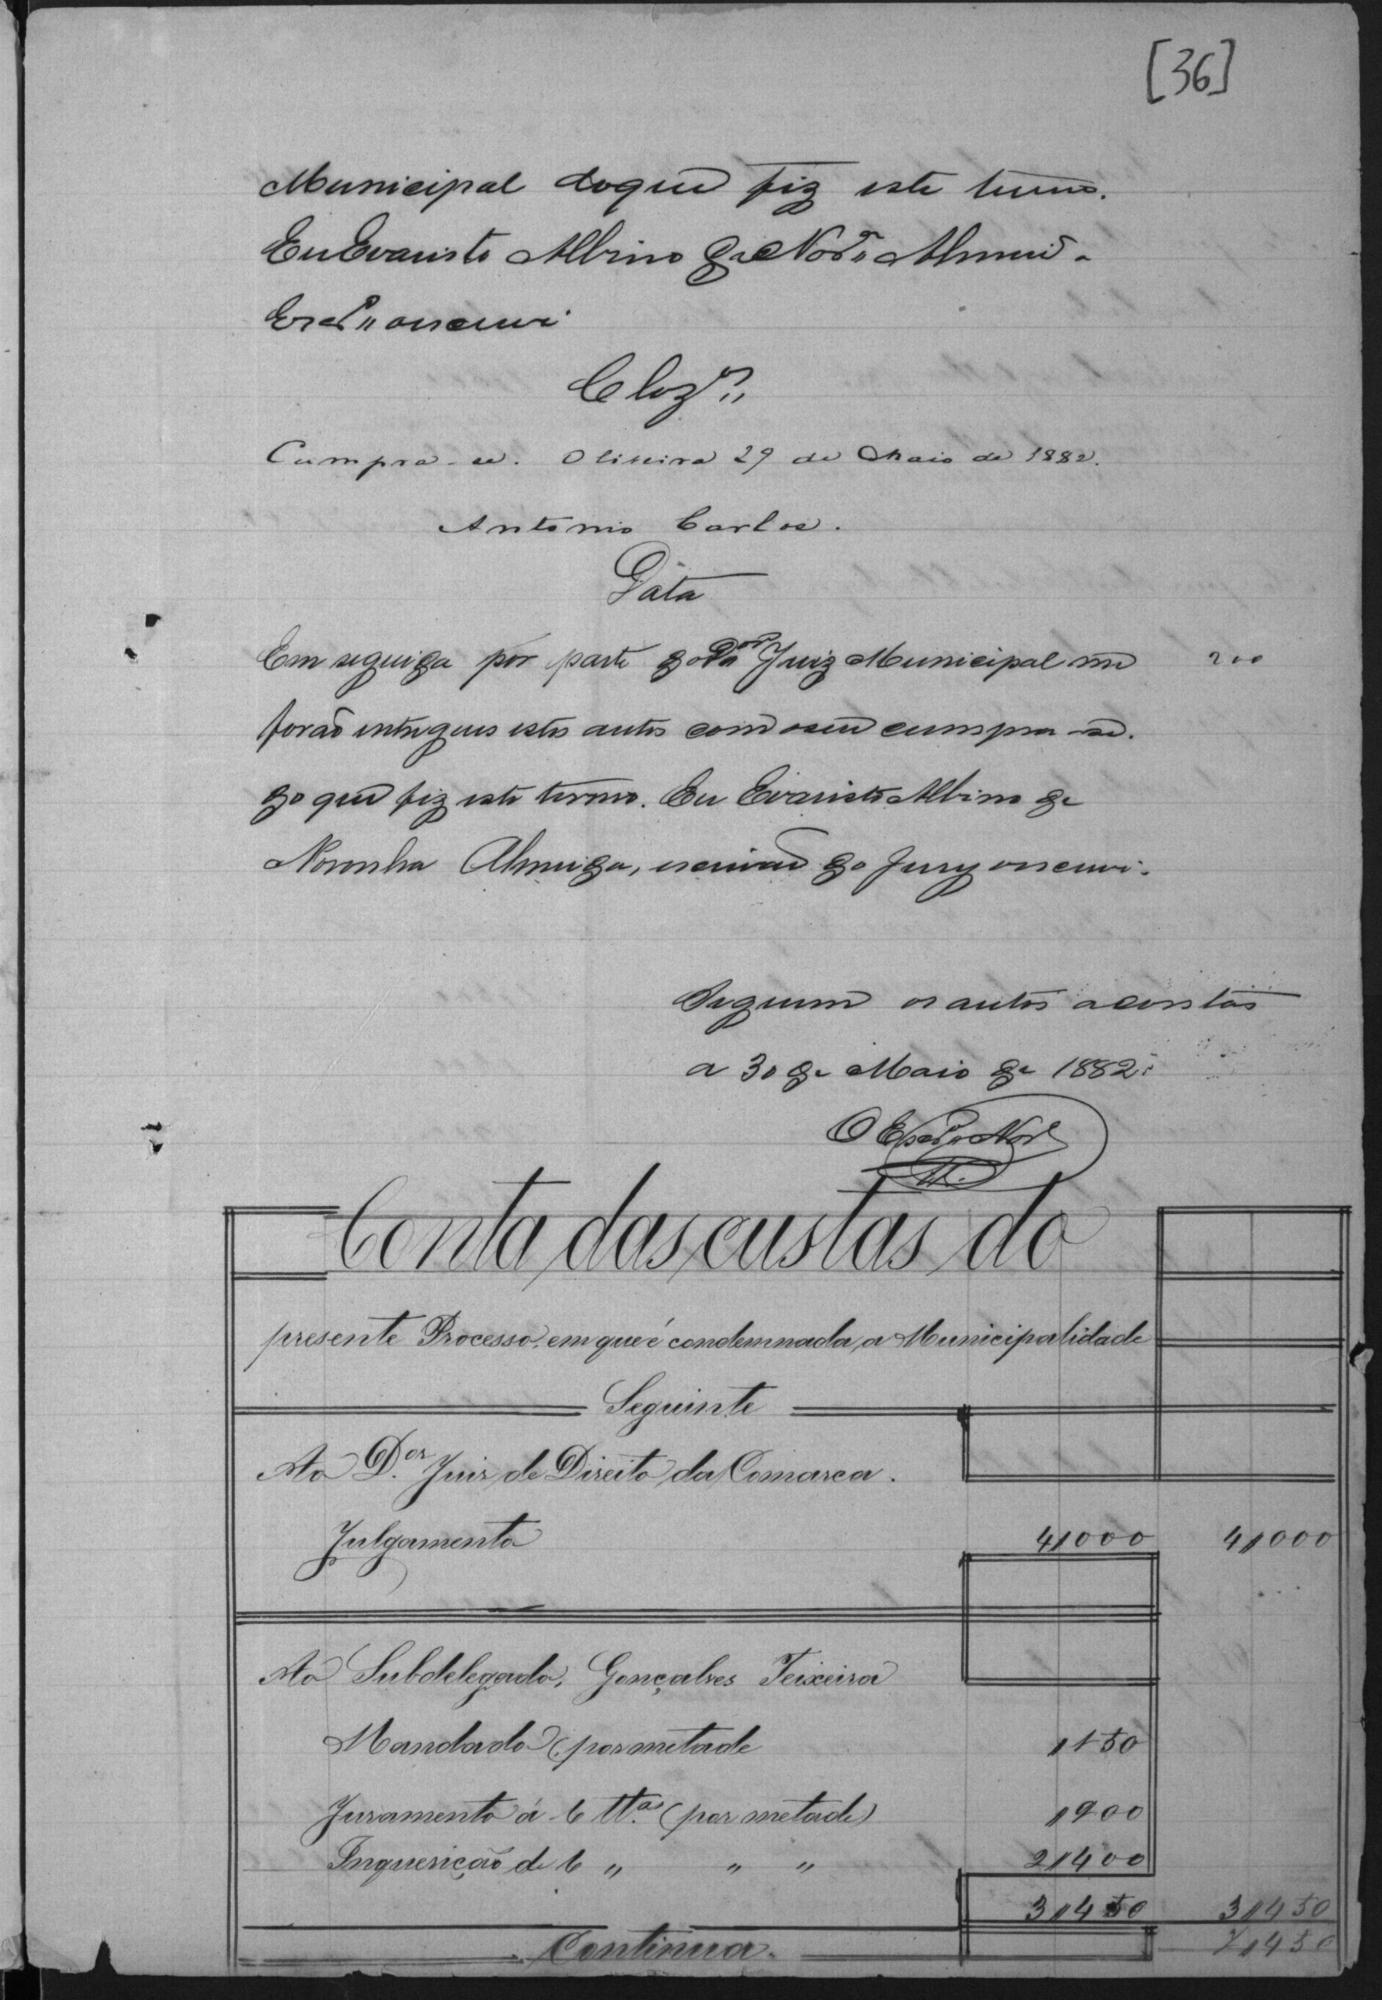 [36]
Municipal doque fiz este termo.
Eu Evaristo Albino de Nor.ª Almeid.ª
Escr.m o escrevi
Cloz.m
Cumpra-se. Oliveira 29 de Maio de 1882.
Antonio Carlos.
Data
Em seguida por parte do Dor. Juiz Municipal me 200
forão entregues estes autos com o seu cumpra-se.
do que fiz este termo. Eu Evaristo Albino de
Noronha Almeida, escrivão do Jury o escrevi.
Seguem os autos a contas
a 30 de Maio de 1882.
Conta das custas do
presente Processo, em que é condemnada, a Municipalidade
Seguinte
Ao D.or Juiz de Direito da Comarca.
Julgamento 4,000 4,000
Ao Subdelegado, Gonçalves Teixeira
Mandado (por metade ,150
Juramento á 6 tt.as (por metade) ,900
Inquerição de 6 " " " 2,400
3,450 3,450
Continua. 7,450